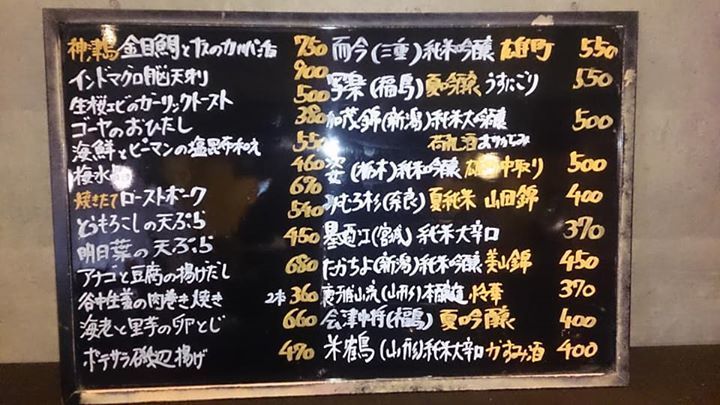 神津島 金目鯛とナスのカルパッチョ 750
インドマグロ脳天刺 900
生桜エビのガーリックトースト 500
ゴーヤのおひたし 380
海鮮とピーマンの塩昆布和え 550
梅水晶 460
焼きたて ローストポーク 670
とうもろこしの天ぷら 540
明日葉の天ぷら 450
アナゴと豆腐の揚げだし 680
谷中生姜の肉巻き焼き 2本 360
海老と里芋の卵とじ 660
ポテサラ磯辺揚げ 470
而今(三重)純米吟醸 雄町 550
写楽(福島)夏吟醸 うすにごり 550
加茂錦(新潟)純米大吟醸 500
荷札酒
姿(栃木)純米吟醸 雄町中取り 500
みむろ杉(奈良)夏純米 山田錦 400
墨廼江(宮城)純米大辛口 370
たかちよ(新潟)純米吟醸 美山錦 450
裏月山流(山形)本醸造 怜華 370
会津中将(福島)夏吟醸 400
米鶴(山形)純米大辛口 かすみ酒 400